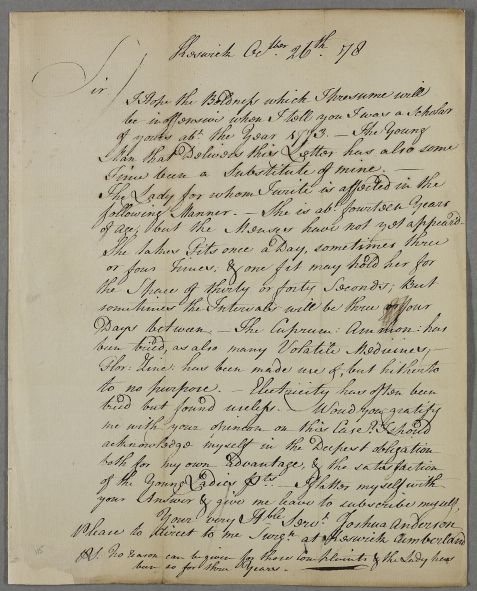 Keswick Octber 26th. 78
Sir
I Hope the Boldness which I presume will
be inoffensive when I tell you I was a scholar
of yours abt. the Year 1773. – The Young
Man that Delivers this Letter has also some
Time been a Substitute of mine. –
The Lady for whom I write is affected in the
following Manner. – She is abt. fourteen Years
of age, but the Menses have not yet appeard.
She takes Fits once a Day, sometimes three
or four times, & one fit may hold her for
the Space of thirty or forty Seconds; But
sometimes the Intervals will be three or four
Days between. – The Cuprum: Ammon: has
been tried, as also many Volatile Medicines, –
Flor: Zinc: has been made use of, but hitherto
to no purpose. – Electricity has often been
tried but found useless. – Would you gratify
me with your opinion on this Case I should
acknowledge myself in the Deepest obligation
both for my own advantage, & the satisfaction
of the Young Ladies Pts. – I flatter myself with
your Answer & give me leave to subscribe myself,
Your very Hble. Servt. Joshua Anderson
Please to Direct to me Surgn. at Keswick Cumberland
PS. No reason can be given for these Complaints & the Lady has
been so for three Years.